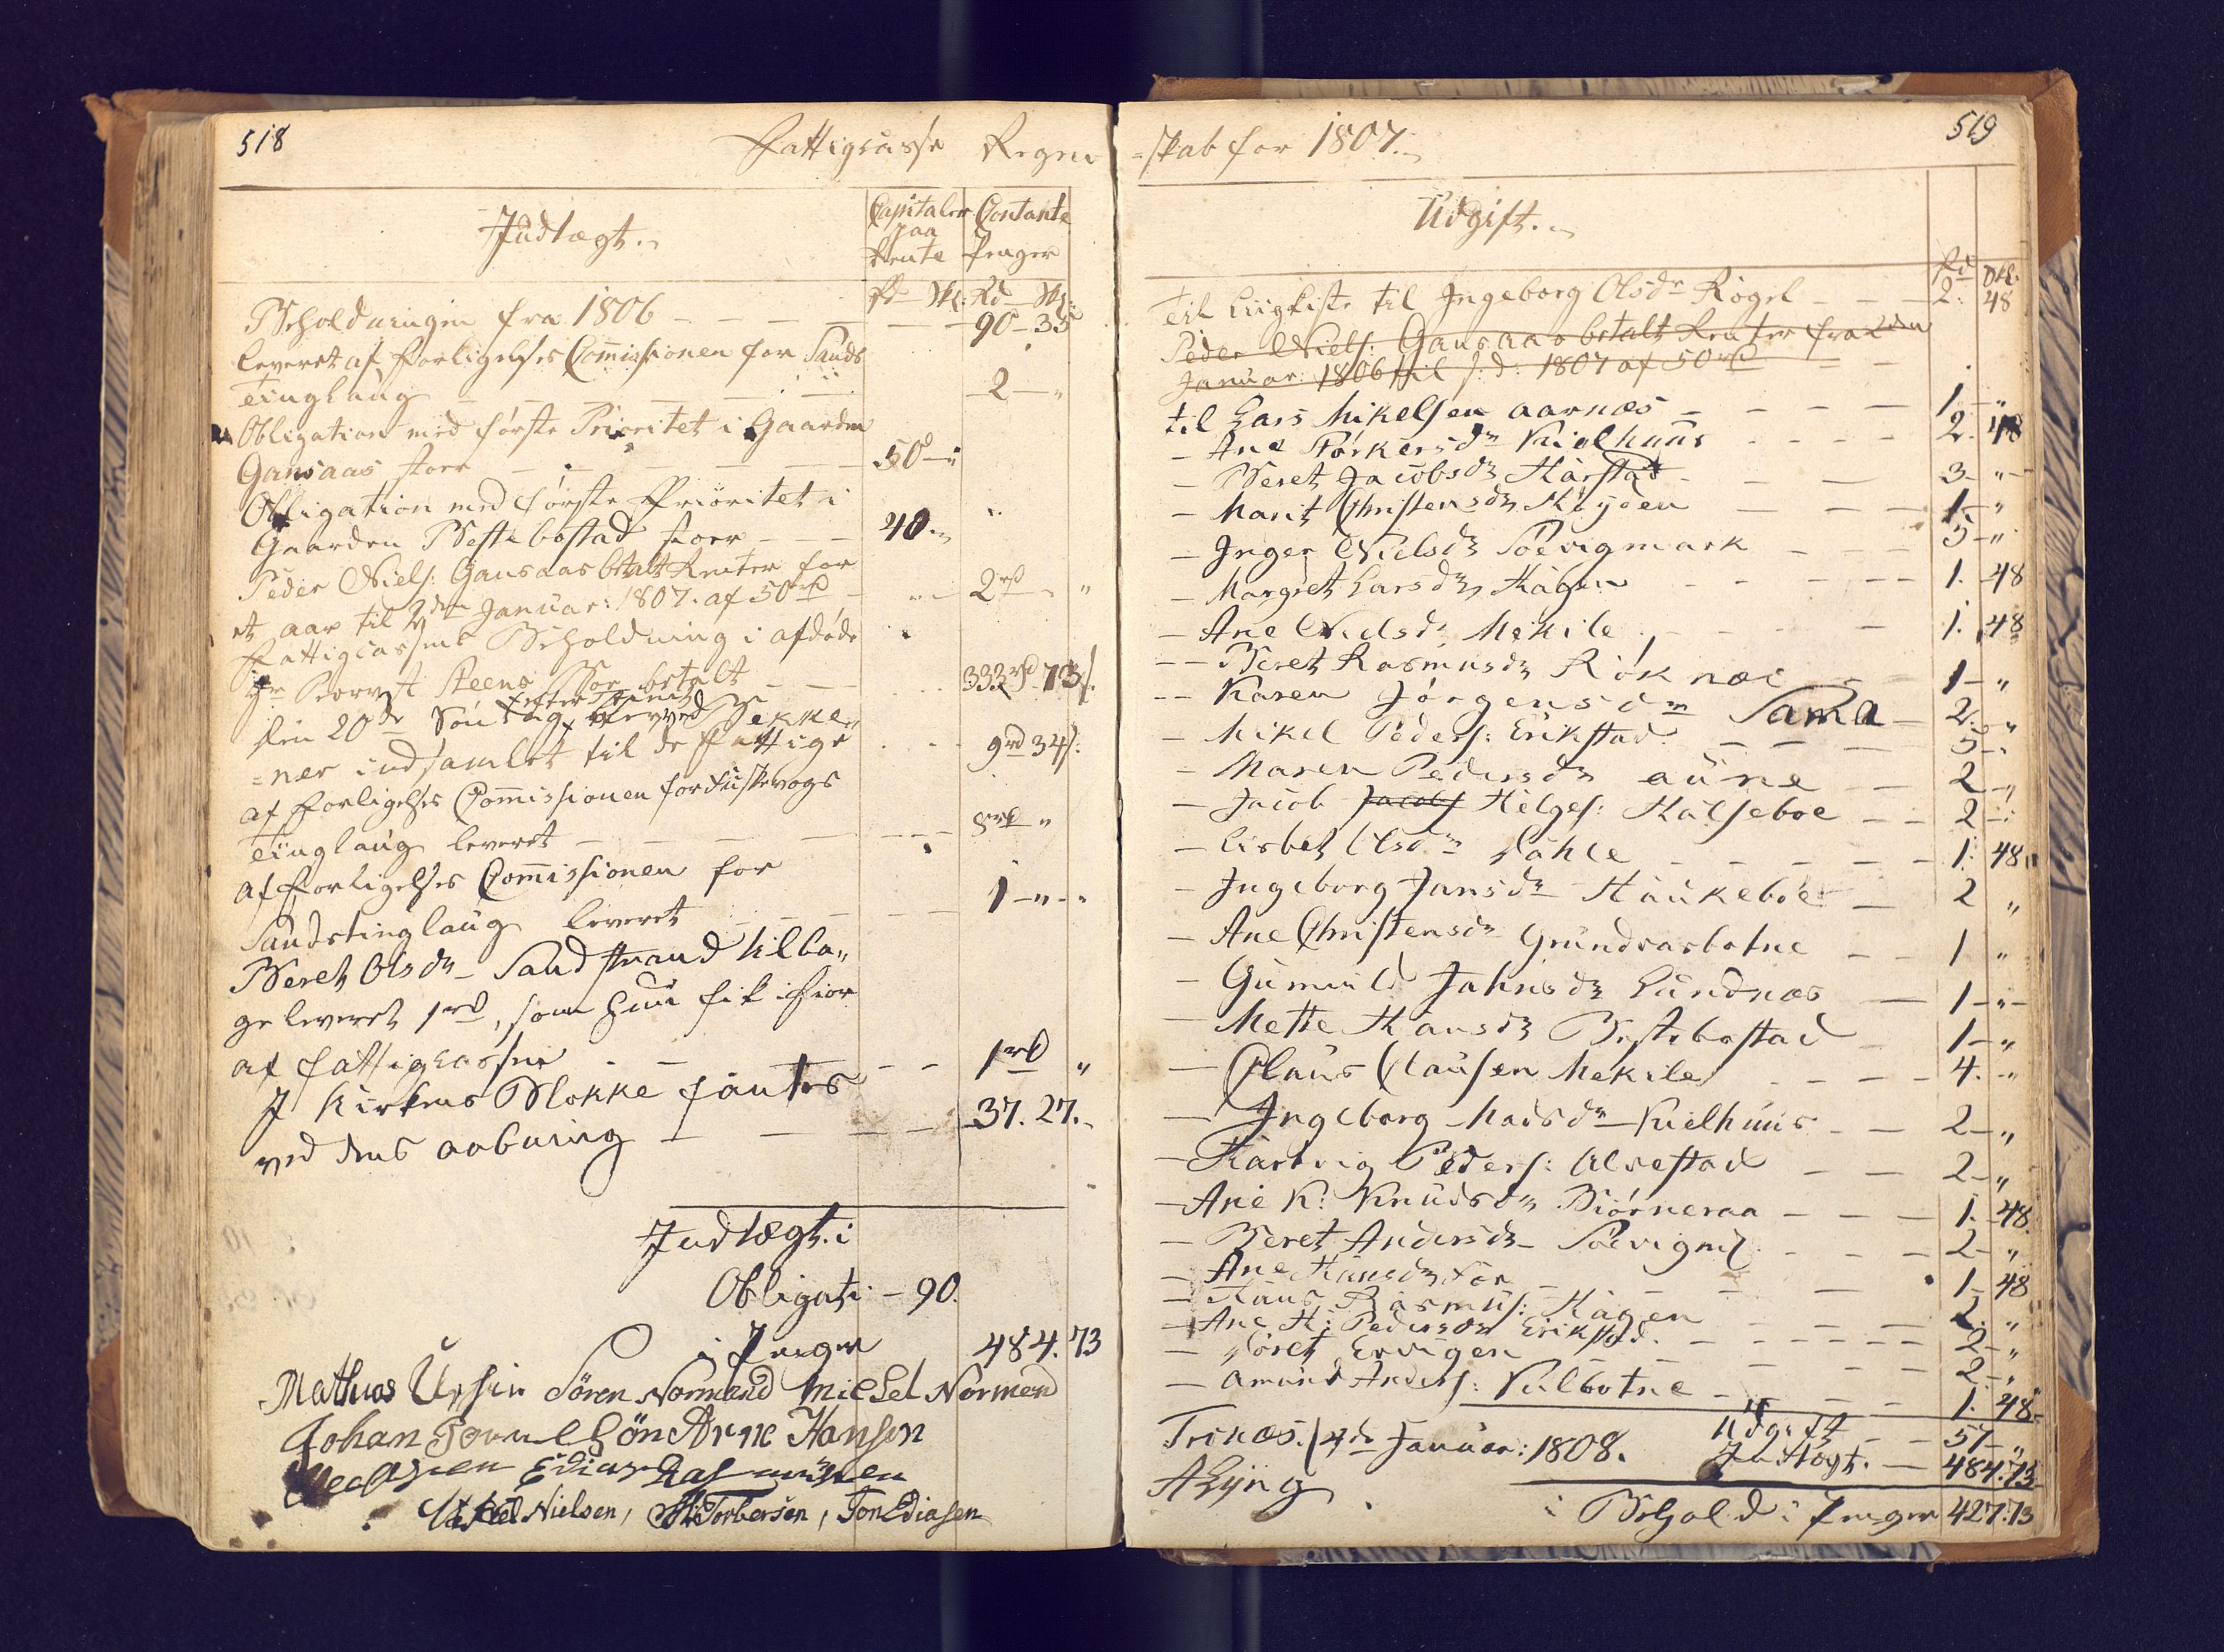 518
Fattigcasse Regne
Indtægt.
Capitaler paa Rente
Contante Penger
Rd Sk: Rd Sk:
Beholdningen fra 1806 - - - - - - 90 - 33
leveret af Forligelses Commissionen for Sands
Tinglaug - - - - 2 - "
Obligation med første Prioritet i Gaarden
Gansaas stor - - - 50 - "
Obligation med første Prioritet i
Gaarden Vestebostad stor - - - 40 "
Peder Niels: Gausaas betalt Renter for
et aar til 2den Januar: 1807. af 50rd - - 2rd "
Fattigcassens Beholdning i afdøde
Hr Provst Steens Boe betalt - - - 333rd 73s.
den 20de Søndag efter Trinit ved Bekke-
=ner indsamlet til de Fattige - - - 9rd 34s:
af Forligelses Commissionen for
Tinglaug leveret - - - "
af Forligelses Commissionen for
Sandstinglaug leveret - - - 1 - " -
Beret Olsdr Sandstrand tilba"
ge leveret 1rd, som hun fik ifior
af fattigcassen - - - - 1rd "
I Kirkens Blokke fantes
ved dens aabning - - - - 37. 27.
Indtægt: i
Obligati - 90.
i Penger 484. 73
Mathias Ursin Sören Normand Michel Normand
Johan Arne Hansen
Edias Rasmusen
Nielsen, Torbersen, Jon Ediasen
519
=skab for 1807.
Udgift.
Rd Sk.
Til Liigkiste til Ingeborg Olsdr Rogel - - - 2: 48
Peder Niels: Gausaas betalt Renter fra 2den
Januar: 1806 til s: d: 1807 af 50rd - - -
til Lars Mikelsen aarnæs - - - - 1 - "
- Ane Torkersdr Kielhuus - - - - 2. 48
- Beret Jacobsdr Harstad - - - 3 - "
- Marit Christensdr Høyden - - 1 - "
- Inger Nielsdr Soevigmark - - - 5 - "
- Margret Larsdr Hagen - - - - 1. 48
- Ane Nielsdr Mekile - - - - 1. 48
- Beret Rasmusdr Röknæs - - 1 - "
- Karen Jörgensdr Sama - 2. "
- Mikel Peders: Erikstad - - - - 5 - "
- Maren Pedersdr aune - - 2 - "
- Jacob Jacobs Helges: Kalseboe - - 2 - "
- Lisbet Olsdr Dahle - - - - - 1. 48
- Ingeborg Jansdr Haukeboe - 2 "
- Ane Christensdr Grundvasbotne - - 1 "
- Gunnild Jahnsdr Lundnæs - 1 - " -
- Mette Hansdr Vestebostad - 1 - "
- Claus Clausen Mekile - - - - 4. - "
- Ingeborg Madsdr Kielhuus - - 2 - "
- Hartvig Peders: Alvestad - - 2 - "
- Ane K: Knudsdr Biörneraa - - - 1. 48
- Beret Andersdr Soevigmk. - - - 2 - "
- Ane Hansdr - - - - 1 - 48
- Hans Rasmus: Hagen - - - 2. "
- Ane H: Pedersdr Erikstad. - - - - 2 - "
- Ervigen - - - - 2 - "
- Amund Anders: Kulbotne - - - - 1. 48
Udgift - - 57 "
Trenæs. 14de Januar: 1808. Indtægt. - 484. 73
ALyng
i Behold: i Penger 427. 73